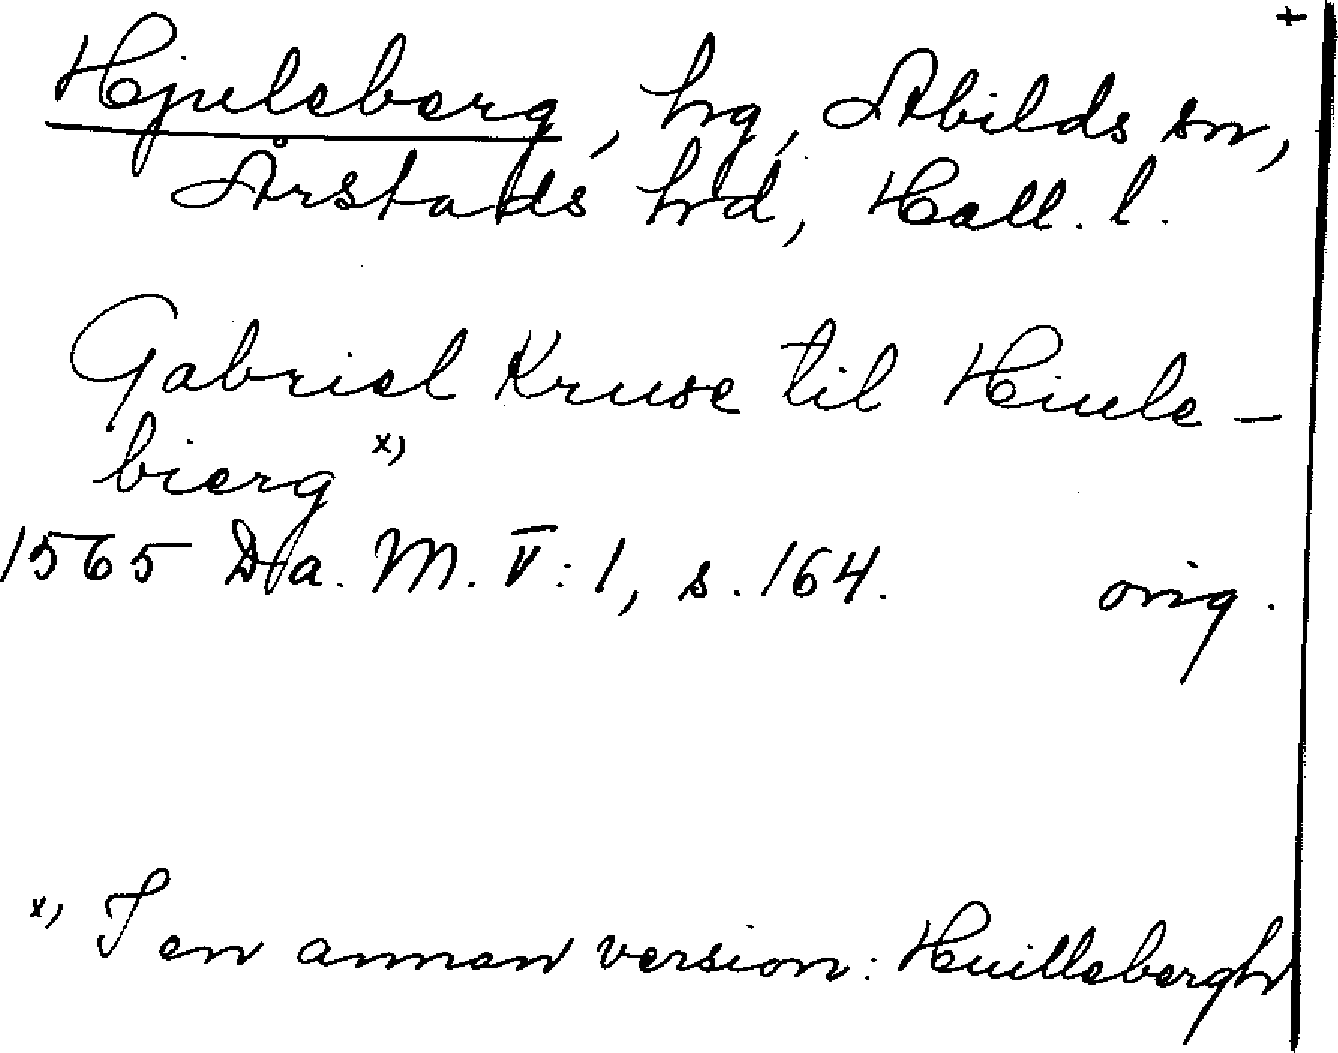 +
Hjuleberg, hg, Abilds sn,
Årstads hd, Hall. l.
Gabriel Kruse til Hiule-
bierg x)
1565 Da. M. V: 1, s. 164. orig.
x) I en annan version: Huillebergh